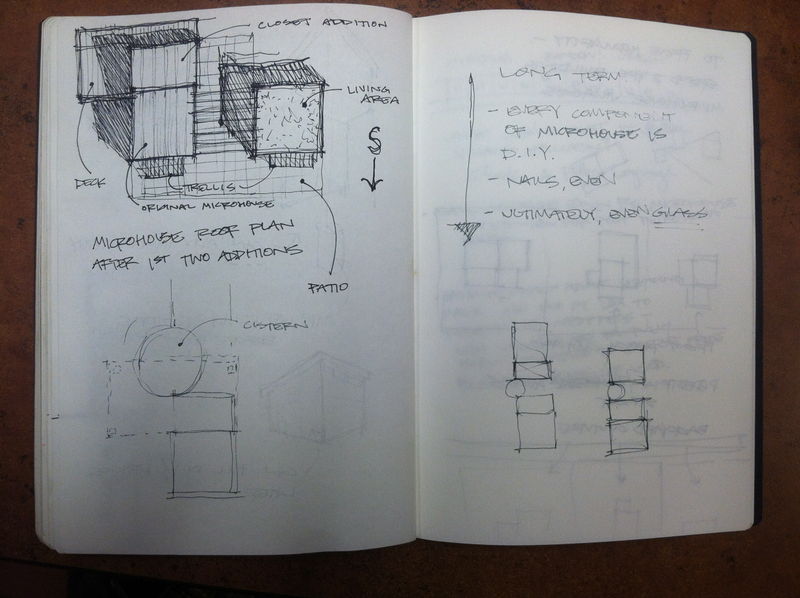 CLOSET ADDITION
LIVING
AREA
S
DECK
TRELLIS
ORIGINAL MICROHOUSE
MICROHOUSE ROOF PLAN
AFTER 1ST TWO ADDITIONS
PATIO
CISTERN
LONG TERM:
- EVERY COMPONENT
OF MICROHOUSE IS
D.I.Y.
- NAILS, EVEN
- ULTIMATELY, EVEN GLASS